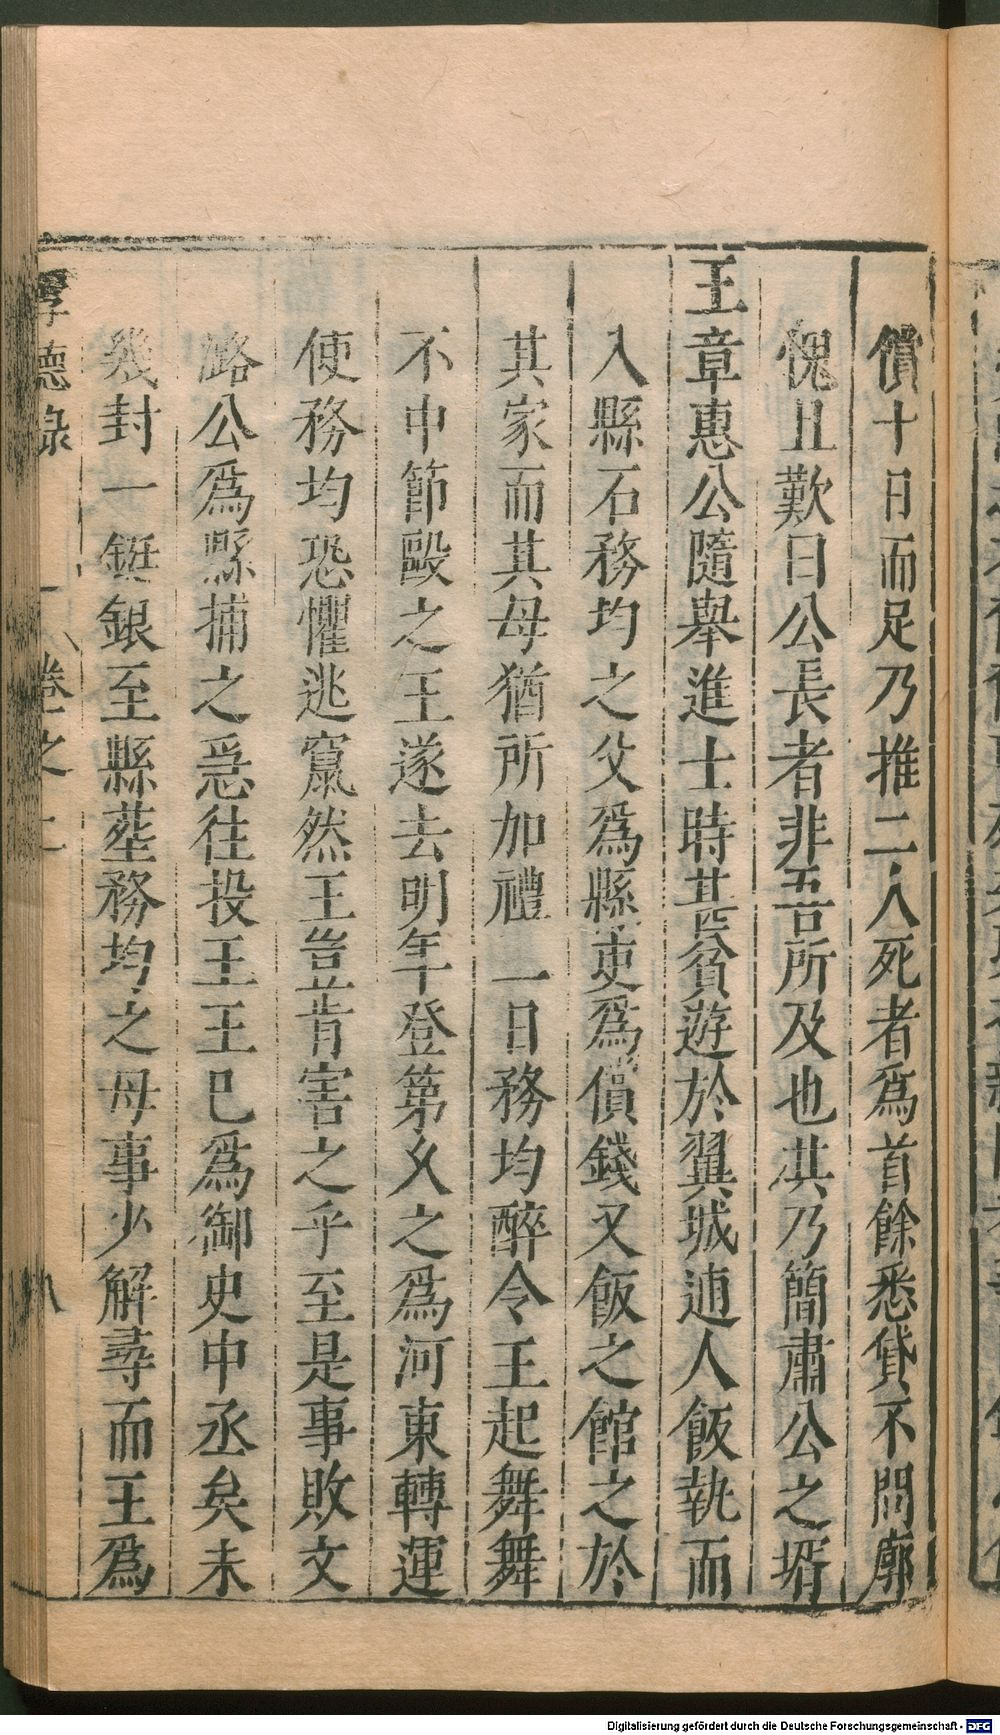 償十日而足乃推二人死者爲首餘悉貸不問廓
愧且歎曰公長者非吾所及也其乃簡肅公之壻
王章惠公隨舉進士時甚貧遊於翼城逋人飯執而
入縣石務均之父爲縣吏爲償錢又飯之館之於
其家而其母猶所加禮一日務均醉令王起舞舞
不中節毆之王遂去明年登第久之爲河東轉運
使務均恐懼逃竄然王豈肯害之乎至是事敗文
潞公爲縣捕之急往投王王巳爲御史中丞矣未
幾封一鋌銀至縣塟務均之母事少解尋而王爲
厚德錄
卷之二
八
Digitalisierung gefördert durch die Deutsche Forschungsgemeinschaft - DFG